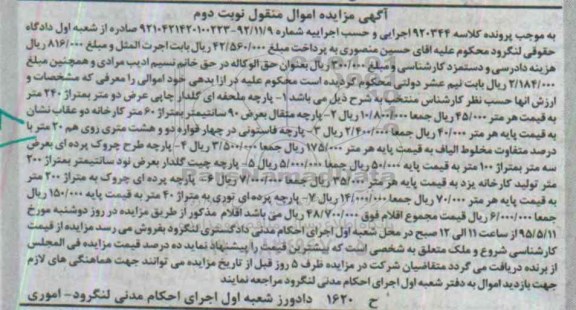 آگهی مزایده اموال منقول نوبت دوم
به موجب پرونده کلاسه ۹۲۰۳۴۴ اجرایی و حسب اجراییه شماره ۹۲/۱۱/۹-۹۲۱۰۴۲۱۴۲۰۱۰۰۲۲۳ صادره از شعبه اول دادگاه
حقوقی لنگرود محکوم علیه اقای حسین منصوری به پرداخت مبلغ ۴۲/۵۶۰/۰۰۰ ریال بابت اجرت المثل و مبلغ ۸۱۶/۰۰۰ ریال
هزینه دادرسی و دستمزد کارشناسی و مبلغ ۳۰۰/۰۰۰ ریال بعنوان حق الوکاله در حق خانم نسیم ادیب مرادی و همچنین مبلغ
۲/۱۸۴/۰۰۰ ریال بابت نیم عشر دولتی محکوم گردیده است محکوم علیه در ازا بدهی خود اموالی را معرفی که مشخصات و
ارزش انها حسب نظر کارشناس منتخب به شرح ذیل می باشد ۱- پارچه ملحفه ای گلدار چاپی عرض دو متر بمتراژ ۲۴۰ متر
به قیمت هر متر ۴۵/۰۰۰ ریال جمعا ۱۰/۸۰۰/۰۰۰ ریال ۲- پارچه متقال بعرض ۹۰ سانتیمتر بمتراژ ۶۰ متر کارخانه دو عقاب نشان
به قیمت پایه هر متر ۴۰/۰۰۰ ریال جمعا ۲/۴۰۰/۰۰۰ ریال ۳- پارچه فاستونی در چهار قواره دو و هشت متری روی هم ۲۰ متر با
درصد متفاوت مخلوط الیاف به قیمت پایه هر متر ۱۷۵/۰۰۰ ریال جمعا ۳/۵۰۰/۰۰۰ ریال ۴- پارچه طرح چروک پرده ای بعرض
سه متر بمتراژ ۱۰۰ متر به قیمت پایه ۵۰/۰۰۰ ریال جمعا ۵/۰۰۰/۰۰۰ ریال ۵- پارچه چیت گلدار بعرض نود سانتیمتر بمتراژ ۲۰۰
متر تولید کارخانه یزد به قیمت پایه هر متر ۳۵/۰۰۰ ریال جمعا ۷/۰۰۰/۰۰۰ ریال ۶- پارچه پرده ای چروک به متراژ ۲۰۰ متر
به قیمت پایه هر متر ۷۰/۰۰۰ ریال جمعا ۱۴/۰۰۰/۰۰۰ ریال ۷- پارچه پرده ای توری به متراژ ۴۰ متر به قیمت پایه ۱۵۰/۰۰۰ ریال
جمعا ۶/۰۰۰/۰۰۰ ریال قیمت مجموع اقلام فوق ۴۸/۷۰۰/۰۰۰ ریال می باشد اقلام مذکور از طریق مزایده در روز دوشنبه مورخ
۹۵/۵/۱۱ از ساعت ۱۱ الی ۱۲ صبح در محل شعبه اول اجرای احکام مدنی دادگستری لنگرود بفروش می رسد مزایده از قیمت
کارشناسی شروع و ملک متعلق به شخصی است که بیشترین قیمت را پیشنهاد نماید ده درصد قیمت مزایده فی المجلس
از برنده دریافت می گردد متقاضیان شرکت در مزایده ظرف ۵ روز قبل از تاریخ مزایده می توانند جهت هماهنگی های لازم
جهت بازدید اموال به دفتر شعبه اول اجرای احکام مدنی لنگرود مراجعه نمایند
ح ۱۶۲۰ دادورز شعبه اول اجرای احکام مدنی لنگرود- اموری